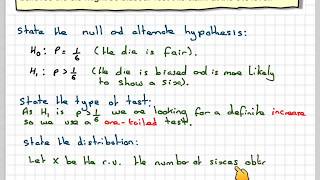 State the null ad alternate hypothesis:
H₀: P = 1/6 (The die is fair).
H₁: P > 1/6 (The die is biased ad is more likely
to show a six).
State the type of test:
As H₁ is p > 1/6 we are looking for a definite increase
so we use a one-tailed test.
State the distribution:
Let X be the r.v. the number of sixes obtai